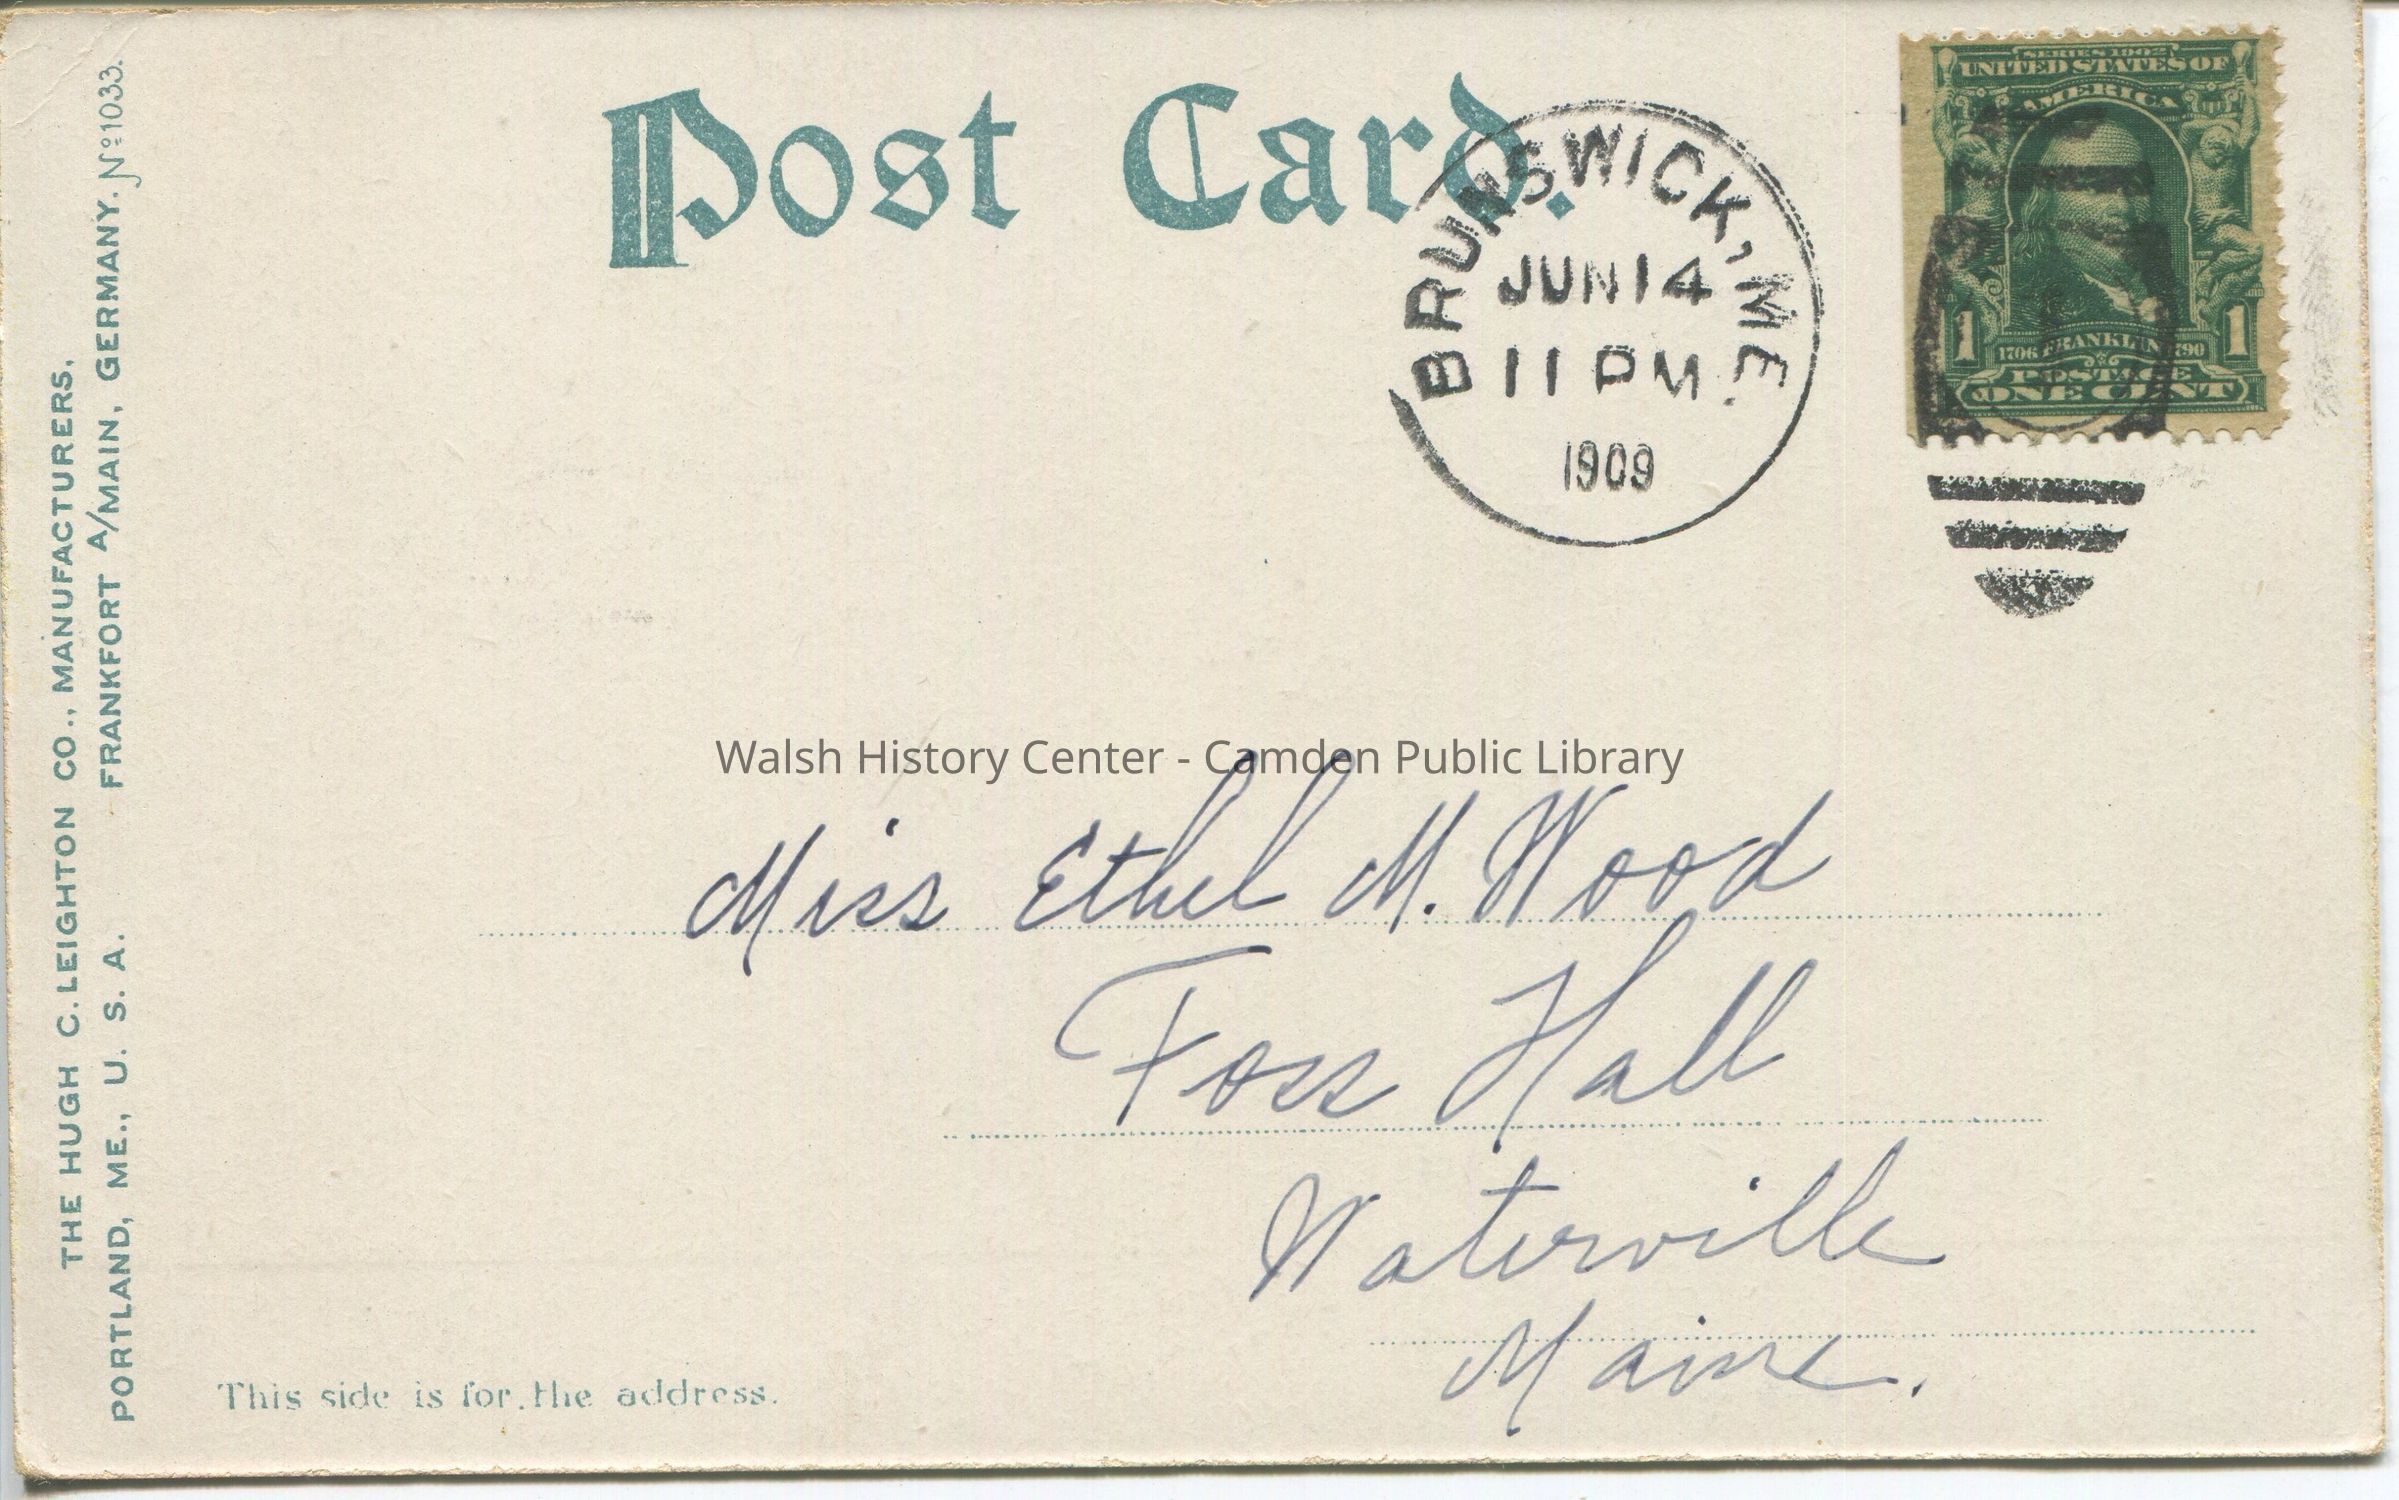 THE HUGH C. LEIGHTON CO., MANUFACTURERS,
PORTLAND, ME., U. S. A. FRANKFORT A/MAIN, GERMANY. No 1033.
Post Card.
BRUNSWICK, ME.
JUN 14
11 PM
1909
SERIES 1902
UNITED STATES OF
AMERICA
1 1
1706 FRANKLIN 1790
POSTAGE
ONE CENT
Walsh History Center - Camden Public Library
Miss Ethel M. Wood
Foss Hall
Waterville
Maine.
This side is for the address.